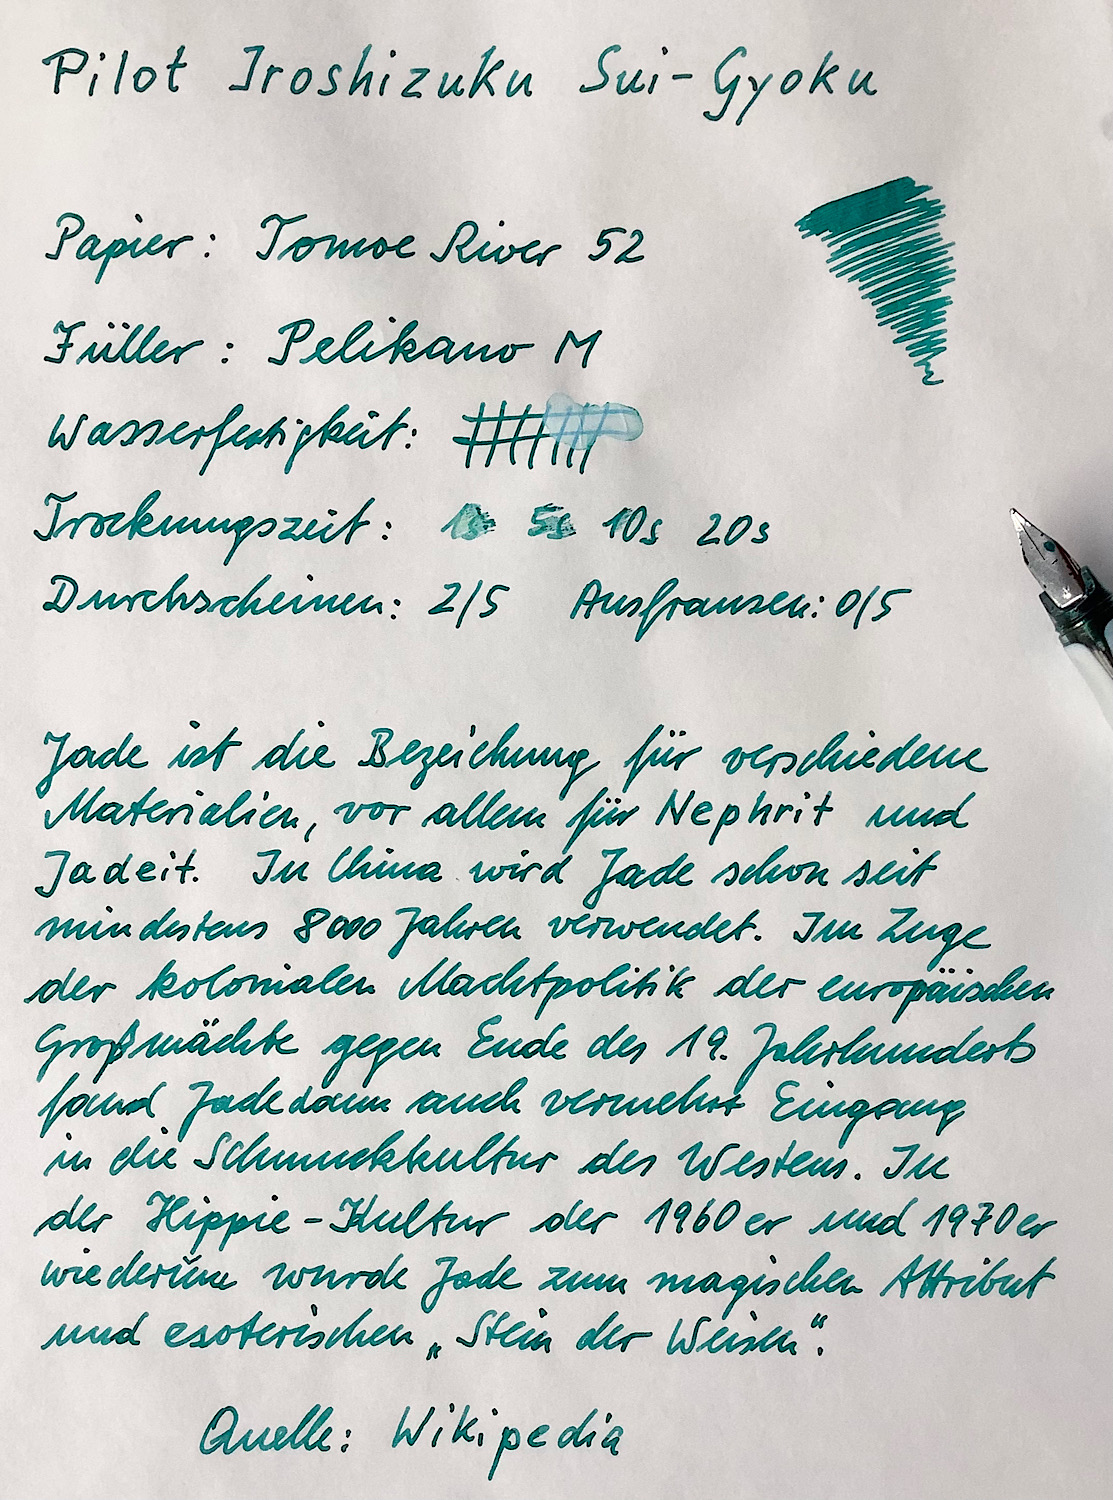 Pilot Iroshizuku Sui-Gyoku
Papier: Tomoe River 52
Füller: Pelikano M
Wasserfestigkeit:
Trocknungszeit: 1s 5s 10s 20s
Durchscheinen: 2/5 Ausfransen: 0/5
Jade ist die Bezeichung für verschiedene
Materialien, vor allem für Nephrit und
Jadeit. In China wird Jade schon seit
mindestens 8000 Jahren verwendet. Im Zuge
der kolonialen Machtpolitik der europäischen
Großmächte gegen Ende des 19. Jahrhunderts
fand Jade dann auch vermehrt Eingang
in die Schmuckkultur des Westens. In
der Hippie-Kultur der 1960er und 1970er
wiederum wurde Jade zum magischen Attribut
und esoterischen „Stein der Weisen“.
Quelle: Wikipedia